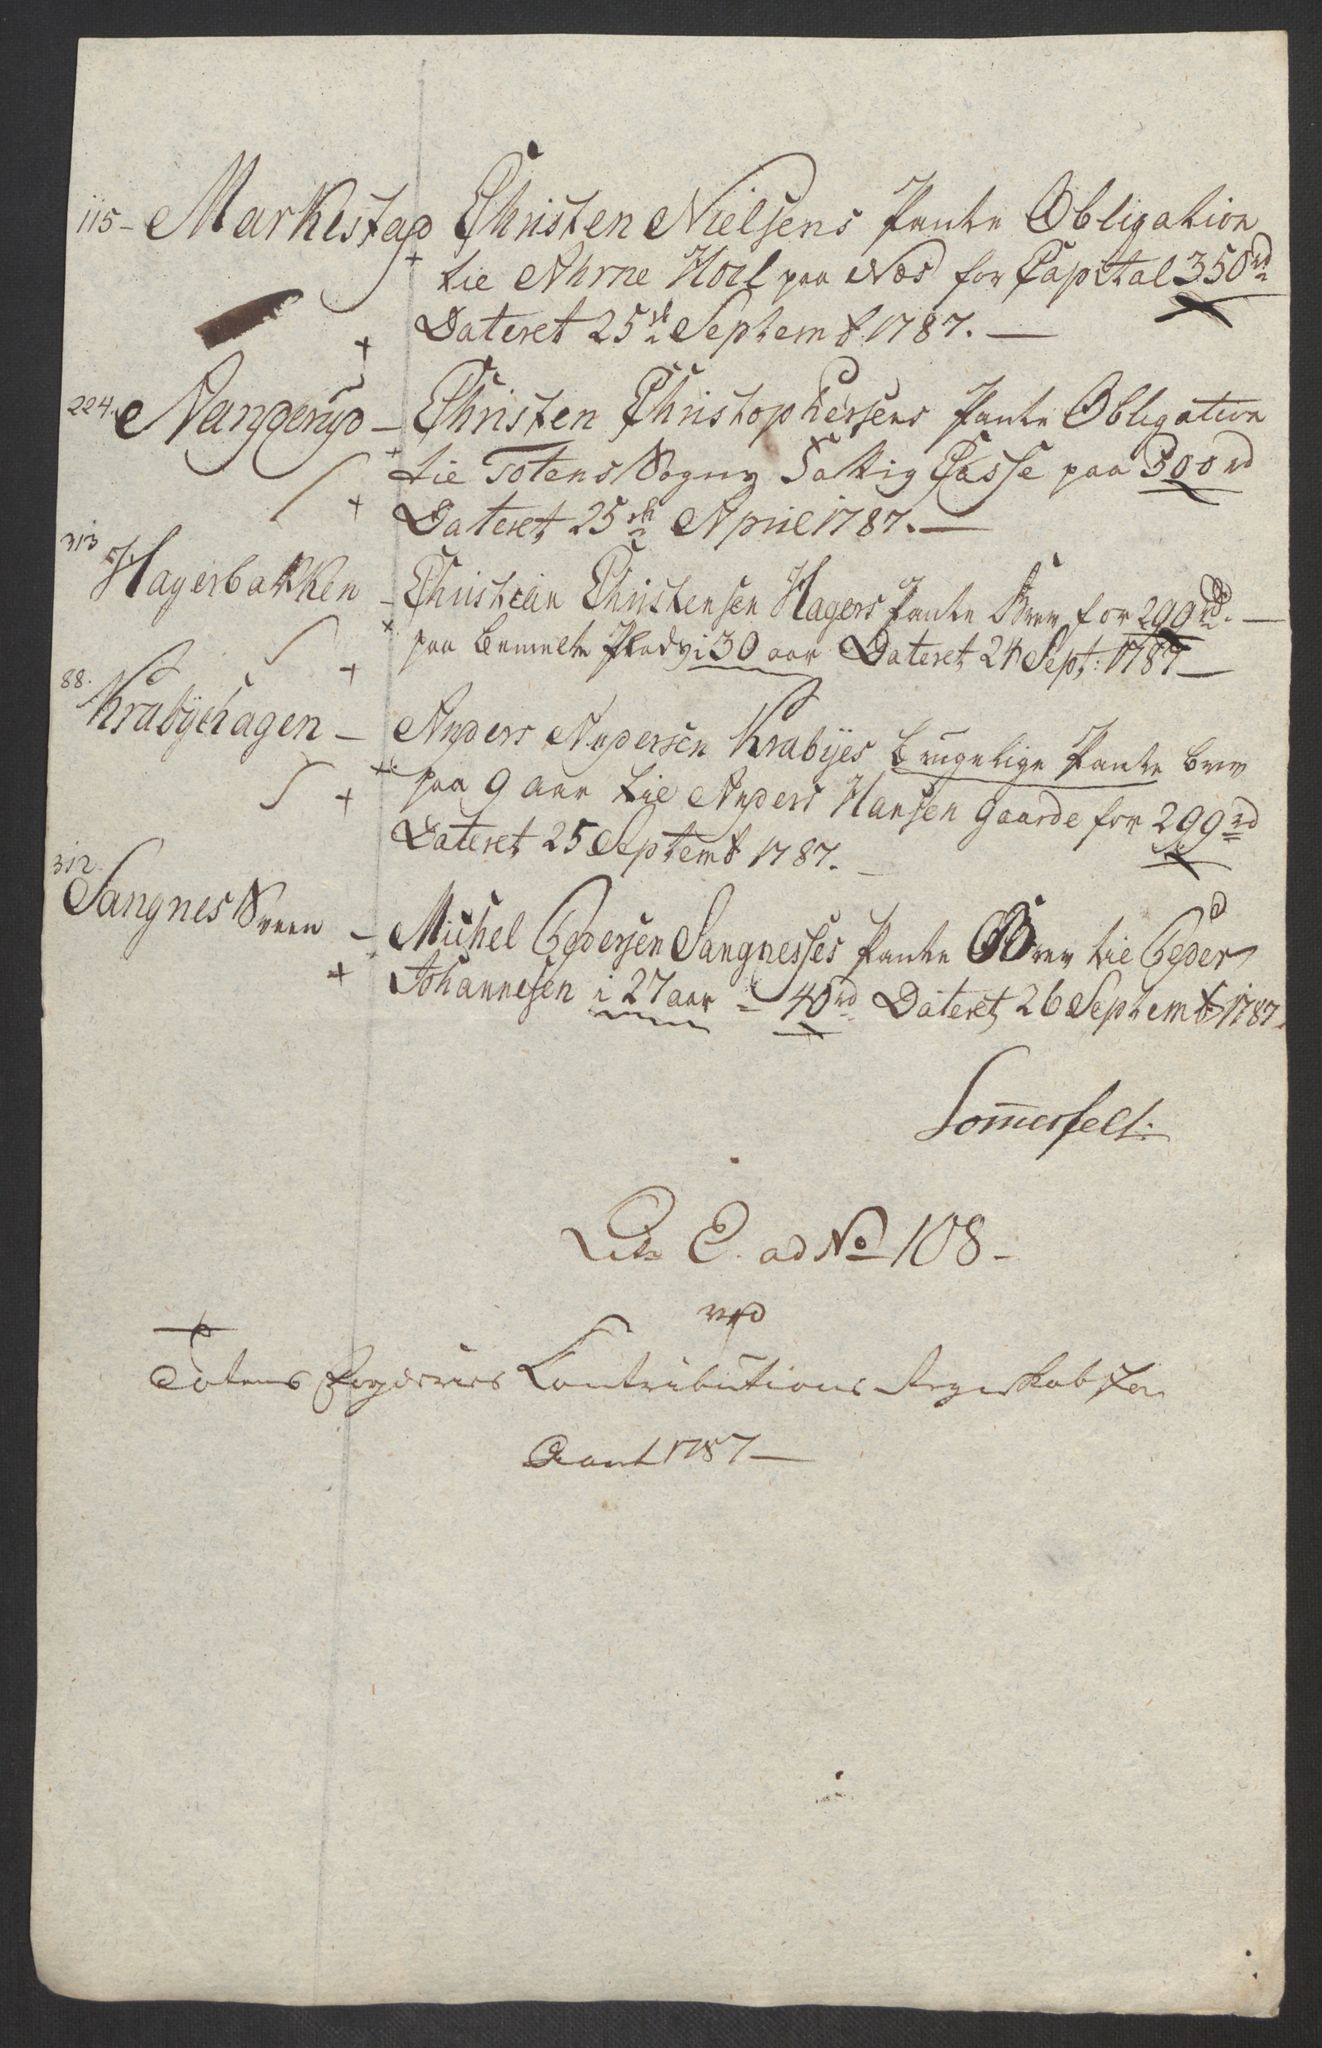 115 - Markestad Christen Nielsens Pante Obligation
til Arne Hoel paa Næs for Capital 350 rd
Dateret 25de Septemb 1787. —
224. Nanderud - Christen Christophersens Pante Obligation
til Totens Sogns Fattig Casse paa 300 rd
Dateret 25de April 1787. —
313 Hagerbakken - Christian Christensen Hagers Pante Brev for 299 rd. —
paa bemelte Plads i 30 aar Dateret 24 Sept: 1787 —
88. Krabyehagen - Anders Andersen Krabyes brugelige Pante brev
paa 9 aar til Anders Hansen Gaarde for 299 rd
Dateret 25 Septemb 1787. —
312. Sangnes Sveen - Michel Pedersen Sangnesses Pante Brev til Peder
Johannesen i 27 aar = 40 rd Dateret 26 Septemb 1787.
Sommerfelt.
Litr E. ad No 108 -
ved
Totens Fogderies Contributions Regnskab for
Aaret 1787 —